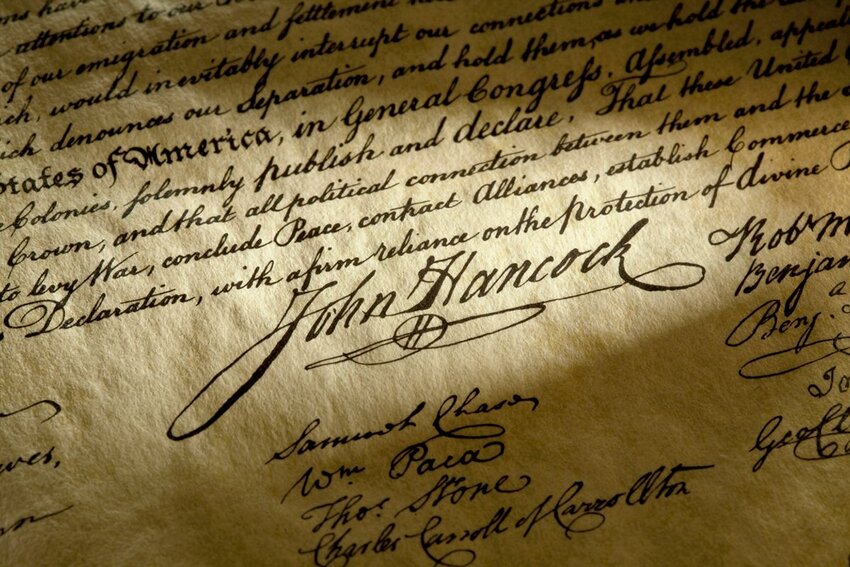 attentions to our
of our emigration and settlement
would inevitably interrupt our connections and
which denounces our Separation, and hold them, as we hold the
States of America, in General Congress, Assembled,
Colonies, solemnly publish and declare, That these United
Crown, and that all political connection between them and the
to levy War, conclude Peace, contract Alliances, establish Commerce
Declaration, with a firm reliance on the protection of divine
John Hancock
Robt
Benj.
Samuel Chase
Wm Paca
Thos. Stone
Charles Carroll of Carrollton
Geo